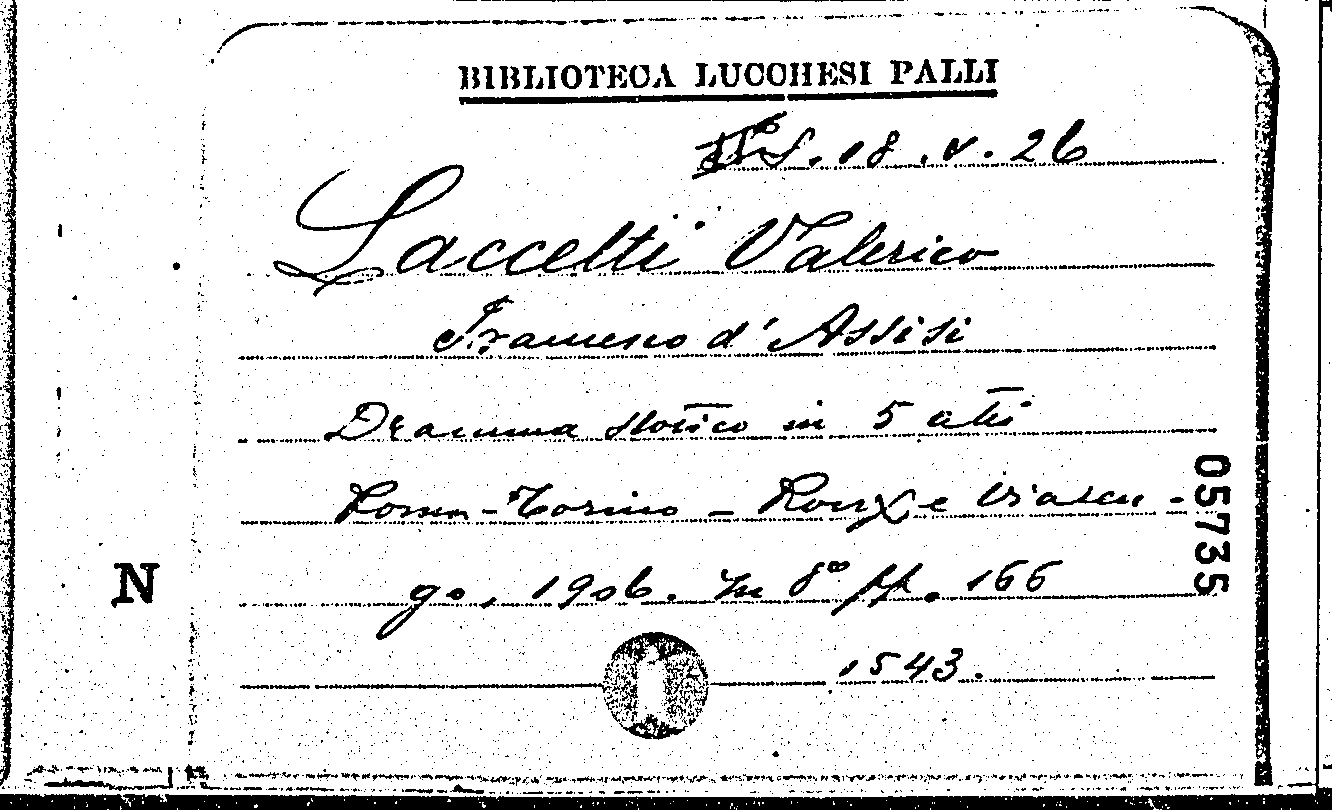 BIBLIOTECA LUCCHESI PALLI
18. V. 26
Laccetti Valerico
Francesco d'Assisi
Dramma storico in 5 atti
Roma-Torino - Roux e Viaren-
go, 1906. In 8° pp. 166
1543.
N
05735